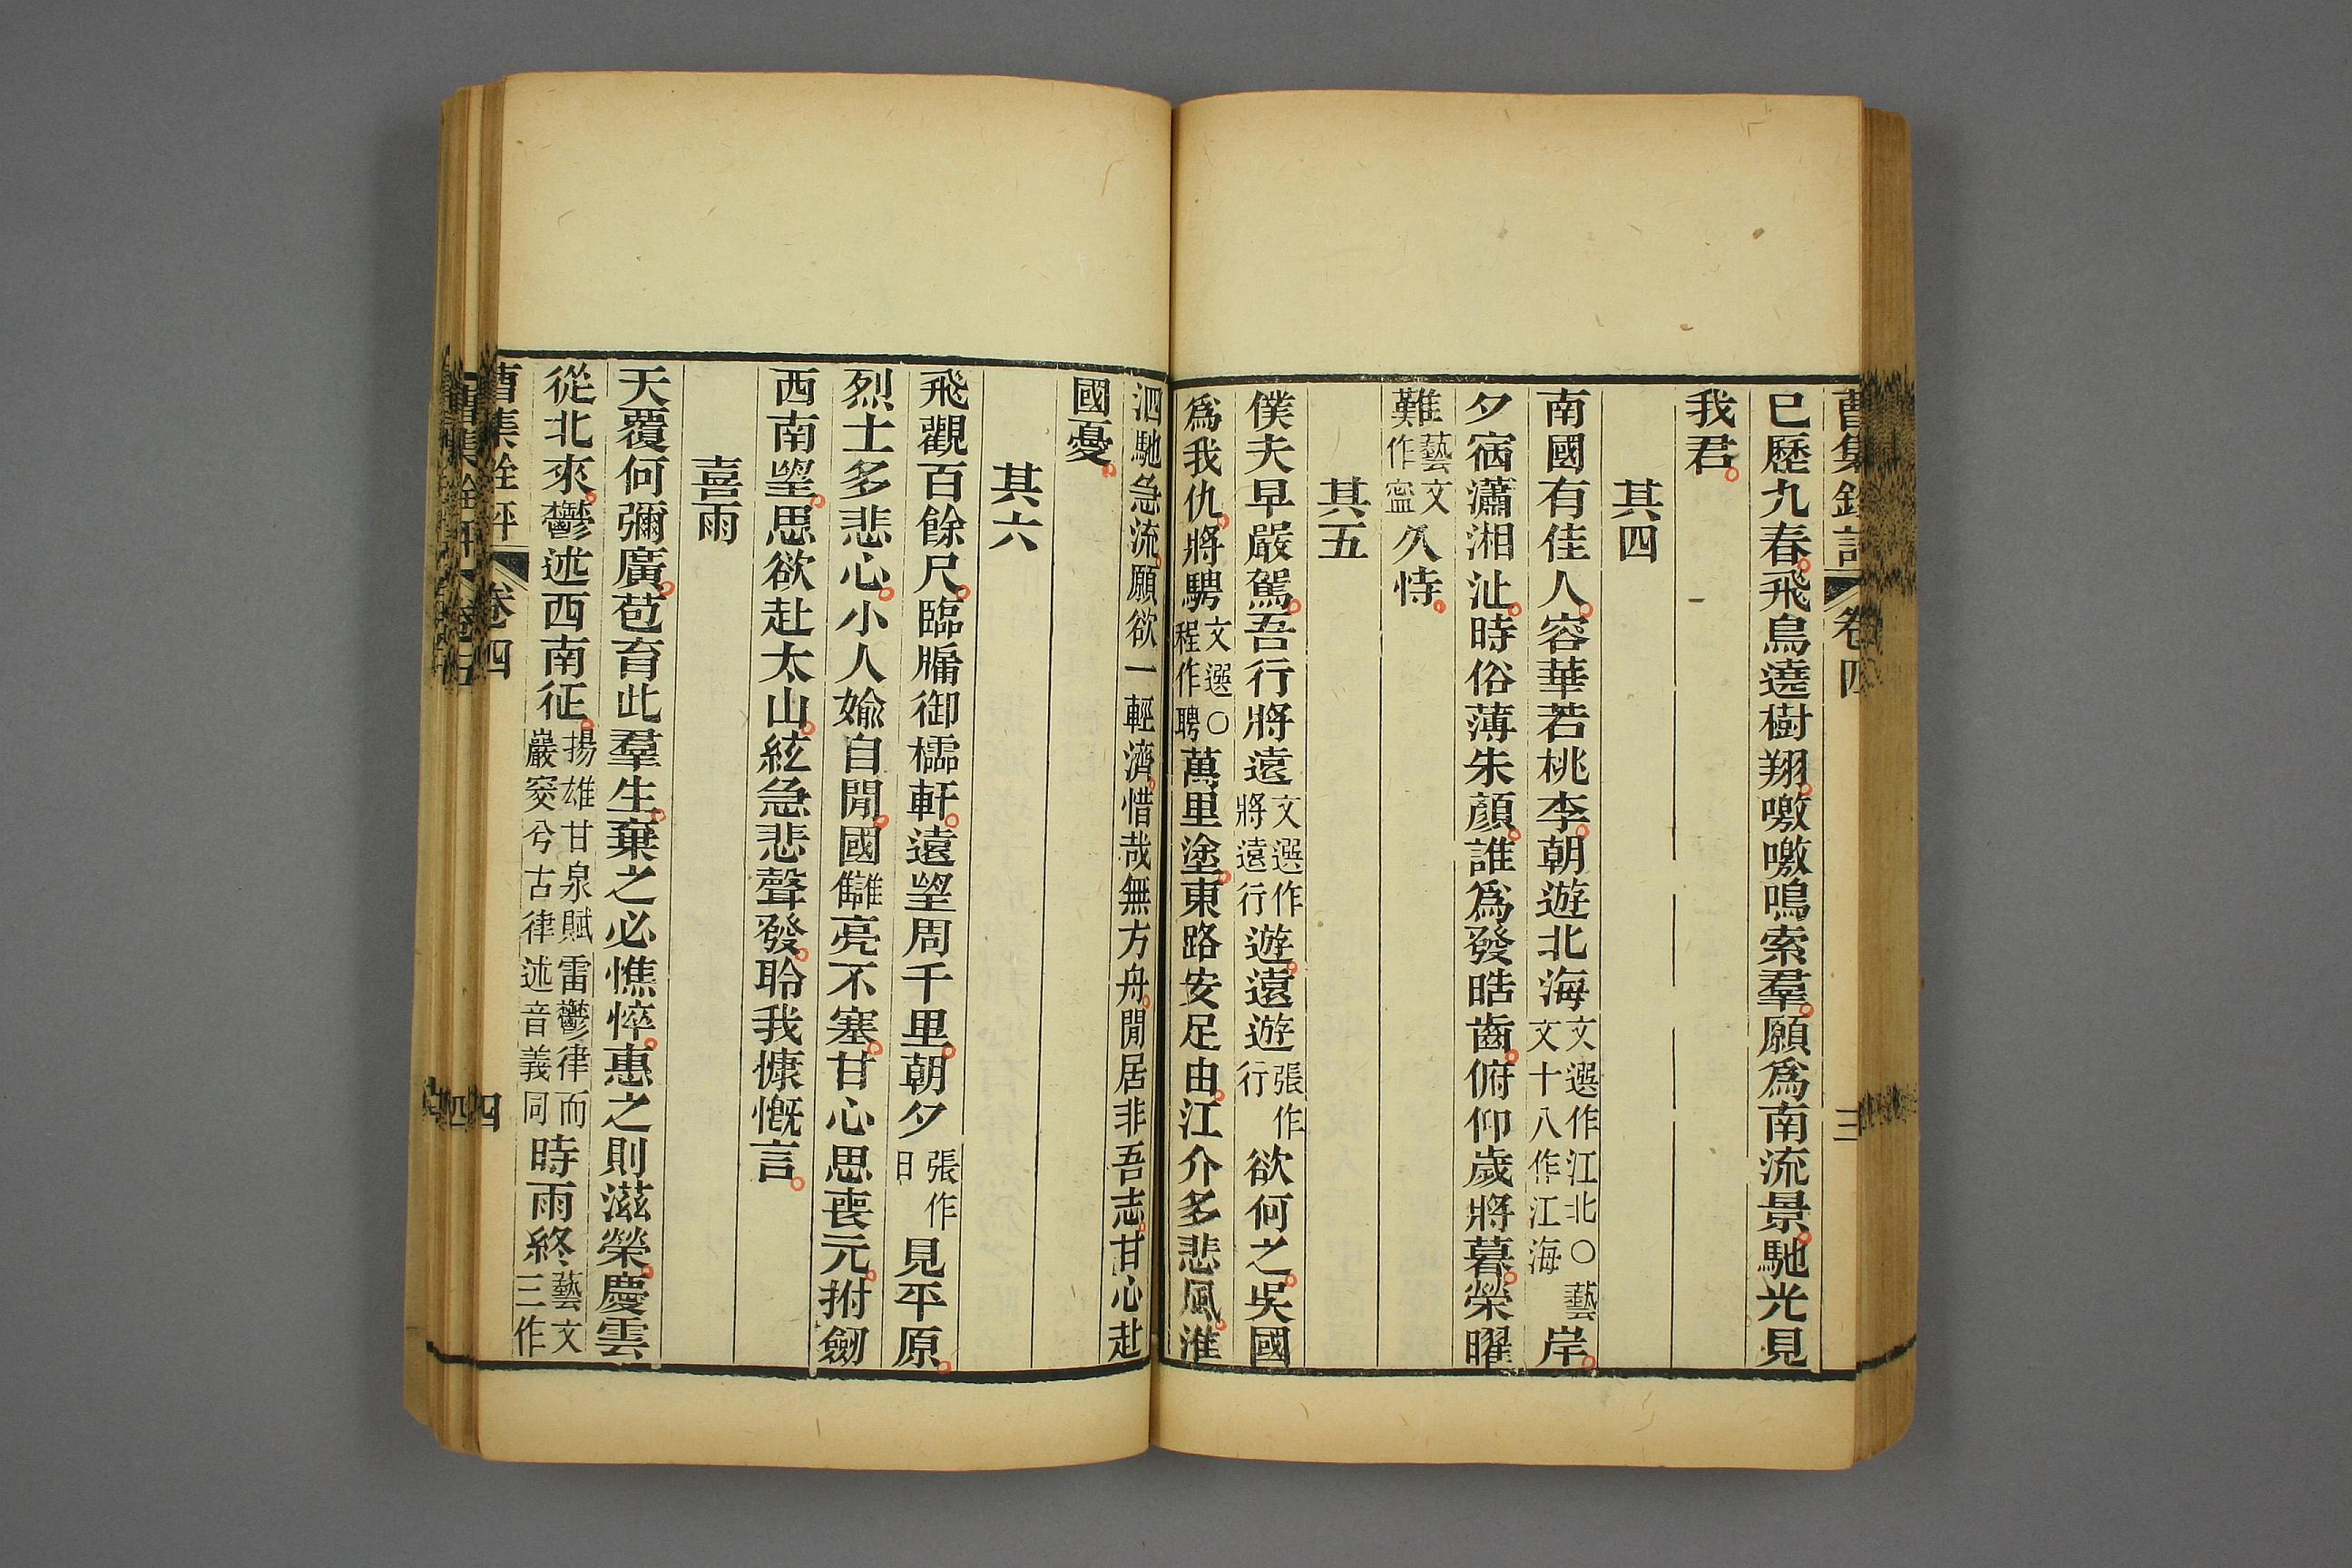 曹集銓評 卷四 三
已歷九春飛鳥遶樹翔噭噭鳴索羣願爲南流景馳光見
我君
其四
南國有佳人容華若桃李朝遊北海文選作江北○藝文十八作江海岸
夕宿瀟湘沚時俗薄朱顏誰爲發皓齒俯仰歲將暮榮曜
難藝文作寍久恃
其五
僕夫早嚴駕吾行將遠文選作將遠行遊遠遊張作行欲何之吳國
爲我仇將騁文選○程作聘萬里塗東路安足由江介多悲風淮
泗馳急流願欲一輕濟惜哉無方舟閒居非吾志甘心赴
國憂
其六
飛觀百餘尺臨牖御櫺軒遠望周千里朝夕張作日見平原
烈士多悲心小人婾自閒國讎亮不塞甘心思喪元拊劒
西南望思欲赴太山絃急悲聲發聆我慷慨言
喜雨
天覆何彌廣苞育此羣生棄之必憔悴惠之則滋榮慶雲
從北來鬱述西南征揚雄甘泉賦雷鬱律而巖窔兮古律述音義同時雨終藝文作三
曹集銓評 卷四 四